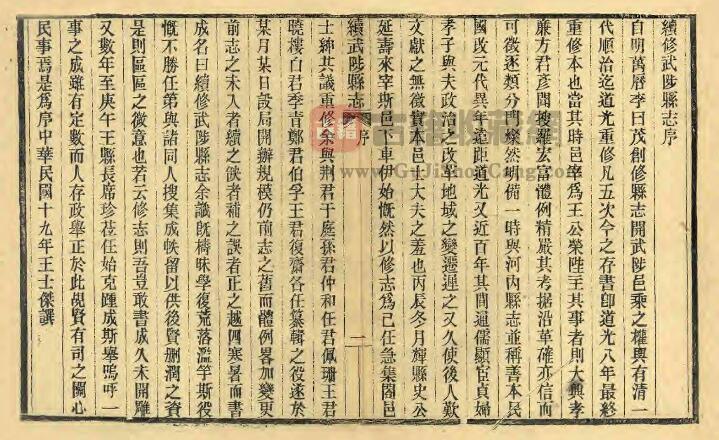 續修武陟縣志序
自明萬曆李日茂創修縣志開武陟邑乘之權輿有清一
代順治迄道光重修凡五次今之存書卽道光八年最終
重修本也當其時邑宰為王公榮陞主其事者則大興孝
廉方君彥聞搜羅宏富體例精嚴其考据沿革確亦信而
可徵逐類分門爍然明備一時與河內縣志並稱善本民
國改元代異年遠距道光又近百年其間通儒顯宦貞婦
孝子與夫政治之改革地域之變遷遲之又久使後人歎
文獻之無徵實本邑士大夫之羞也丙辰冬月輝縣史公
延壽來宰斯邑下車伊始慨然以修志為己任急集闔邑
續武陟縣志 序 二
士紳共議重修余與荆君于庭孫君仲和任君佩珊王君
曉樓白君季青鄭君伯孚王君復齋各任纂輯之役遂於
某月某日設局開辦規模仍前志之舊而體例畧加變更
前志之未入者續之佚者補之誤者正之越四寒暑而書
成名曰續修武陟縣志余識旣檮昧學復荒落濫竽斯役
慨不勝任第與諸同人搜集成帙留以供後賢删潤之資
是則區區之微意也若云修志則吾豈敢書成久未開雕
又數年至庚午王縣長席珍莅任始克踵成斯舉嗚呼一
事之成雖有定數而人存政舉正於此覘賢有司之關心
民事焉是為序中華民國十九年王士傑譔
古籍收藏網
www.GuJiShouCang.com